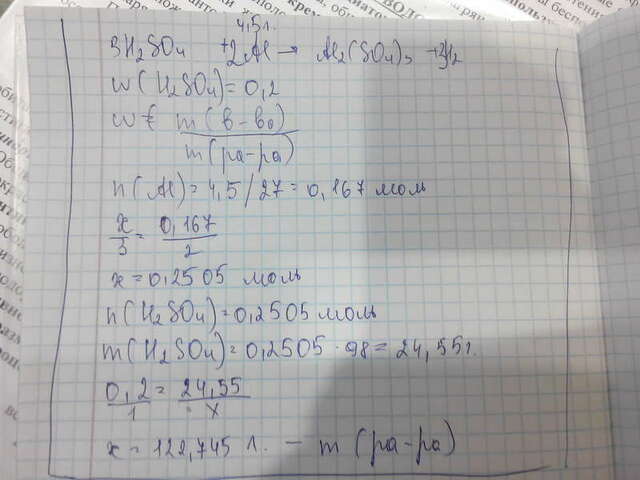 4,5г.
3H2SO4 + 2Al → Al2(SO4)3 + 3H2
w(H2SO4) = 0,2
w = m(в-ва)
m(ра-ра)
n(Al) = 4,5/27 = 0,167 моль
x/3 = 0,167/2
x = 0,2505 моль
n(H2SO4) = 0,2505 моль
m(H2SO4) = 0,2505 · 98 = 24,55г.
0,2/1 = 24,55/x
x = 122,745 г. — m(ра-ра)